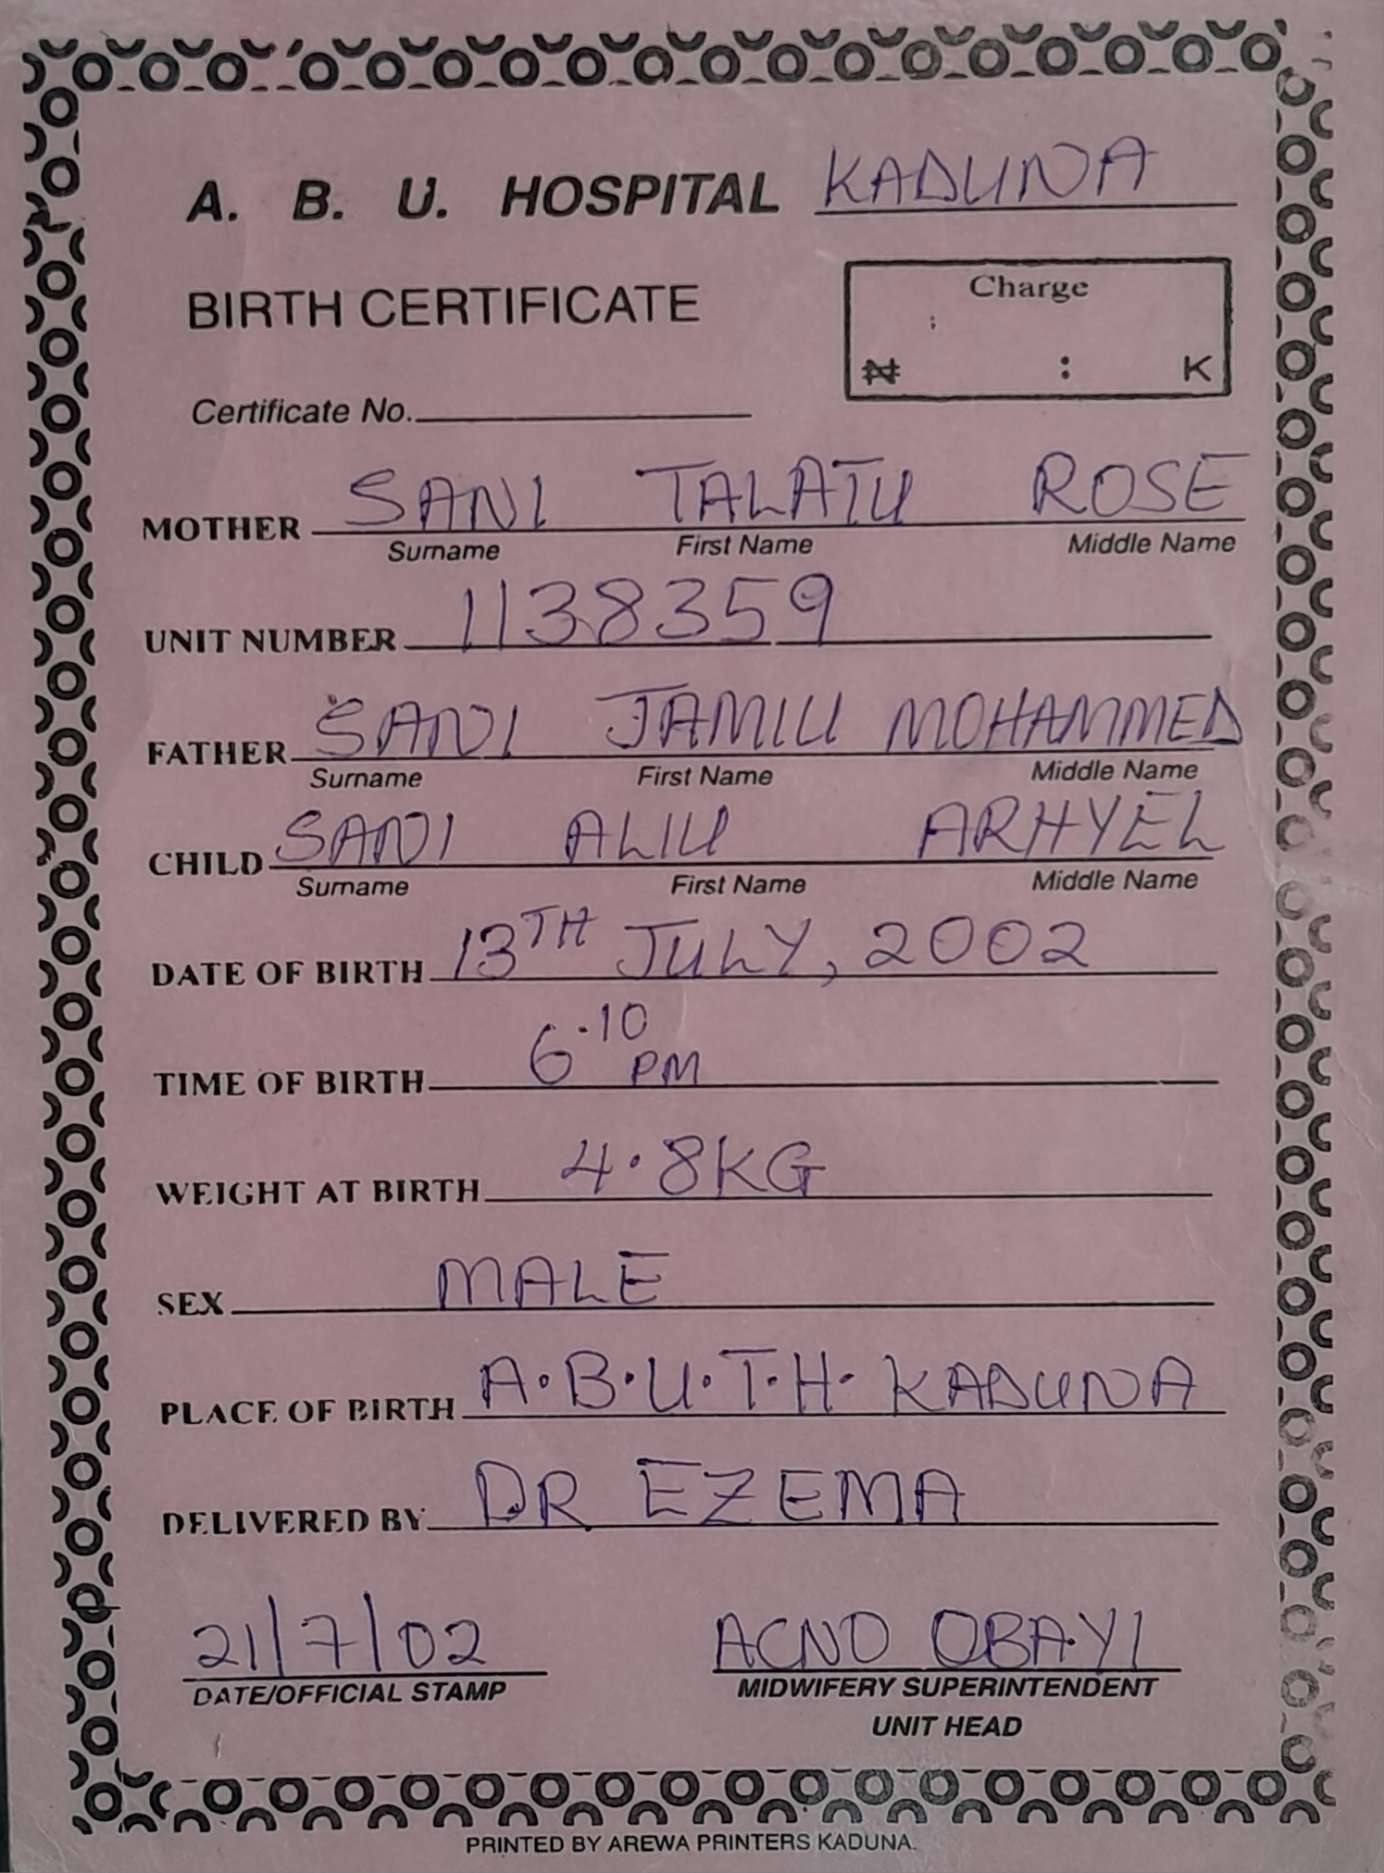 A. B. U. HOSPITAL KADUNA
BIRTH CERTIFICATE
Charge
₦ : K
Certificate No.
MOTHER SANI TALATU ROSE
Surname First Name Middle Name
UNIT NUMBER 1138359
FATHER SANI JAMIU MOHAMMED
Surname First Name Middle Name
CHILD SANI ALIU ARHYEL
Surname First Name Middle Name
DATE OF BIRTH 13TH JULY, 2002
TIME OF BIRTH 6.10 PM
WEIGHT AT BIRTH 4.8KG
SEX MALE
PLACE OF BIRTH A.B.U.T.H. KADUNA
DELIVERED BY DR EZEMA
21/7/02 ACNO OBAYI
DATE/OFFICIAL STAMP MIDWIFERY SUPERINTENDENT
UNIT HEAD
PRINTED BY AREWA PRINTERS KADUNA.